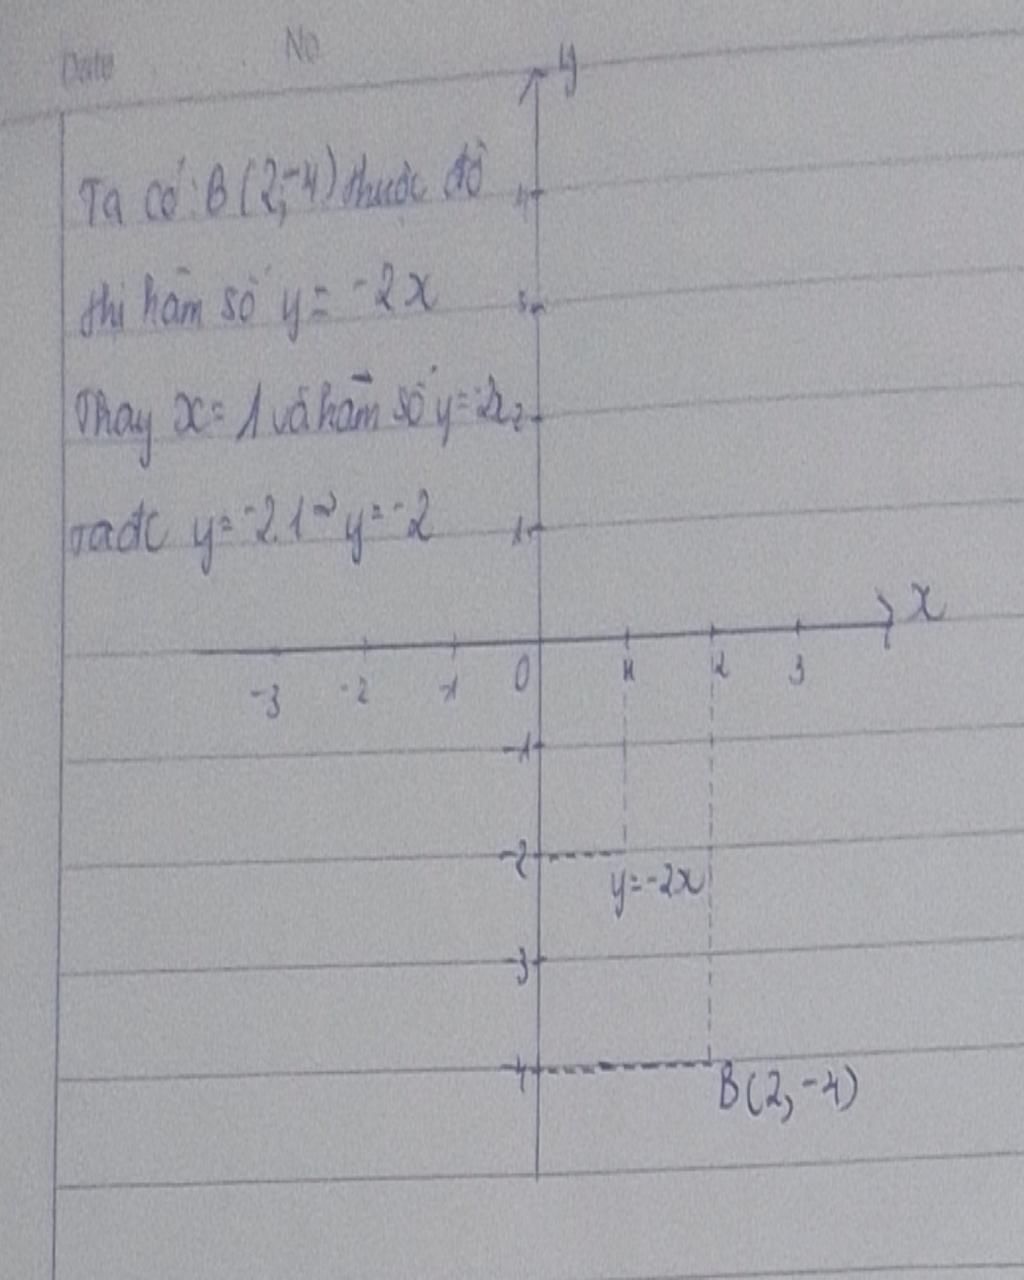 Date No
y
Ta có: B(2,-4) thuộc đồ
thị hàm số y = -2x
Thay x = 1 và hàm số y = -2x
ta đc y = -2.1 → y = -2
4
3
2
1
x
-3 -2 -1 0 1 2 3
-1
-2
y = -2x
-3
-4
B(2,-4)